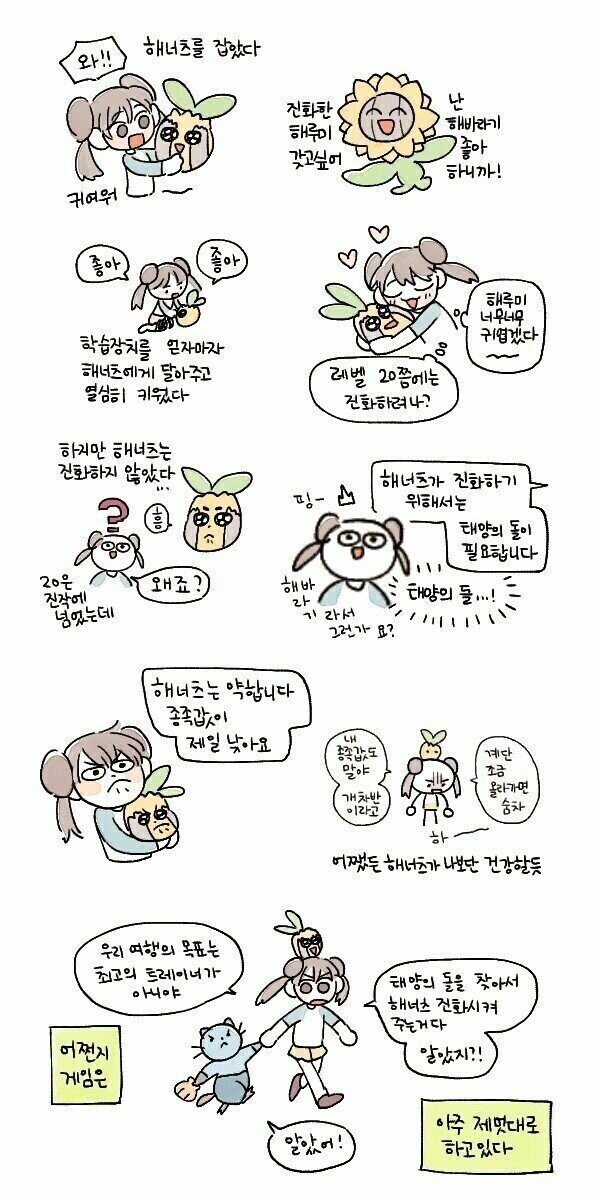 와!!
해너츠를 잡았다
귀여워
진화한
해루미
갖고싶어
난
해바라기
좋아
하니까!
좋아
좋아
학습장치를 얻자마자
해너츠에게 달아주고
열심히 키웠다
해루미
너무너무
귀엽겠다
레벨 20쯤에는
진화하려나?
하지만 해너츠는
진화하지 않았다
...
?
흠
20은
진작에
넘었는데
왜죠?
핑-
해너츠가 진화하기
위해서는
태양의 돌이
필요합니다
해바
라
기 라서
그런가 요?
태양의 돌...!
해너츠는 약합니다
종족값이
제일 낮아요
내
종족값도
말야
개차반
이라고
계단
조금
올라가면
숨차
하
어쨌든 해너츠가 나보단 건강할듯
우리 여행의 목표는
최고의 트레이너가
아니야
태양의 돌을 찾아서
해너츠 진화시켜
주는거다
알았지?!
어쩐지
게임은
알았어!
아주 제멋대로
하고있다